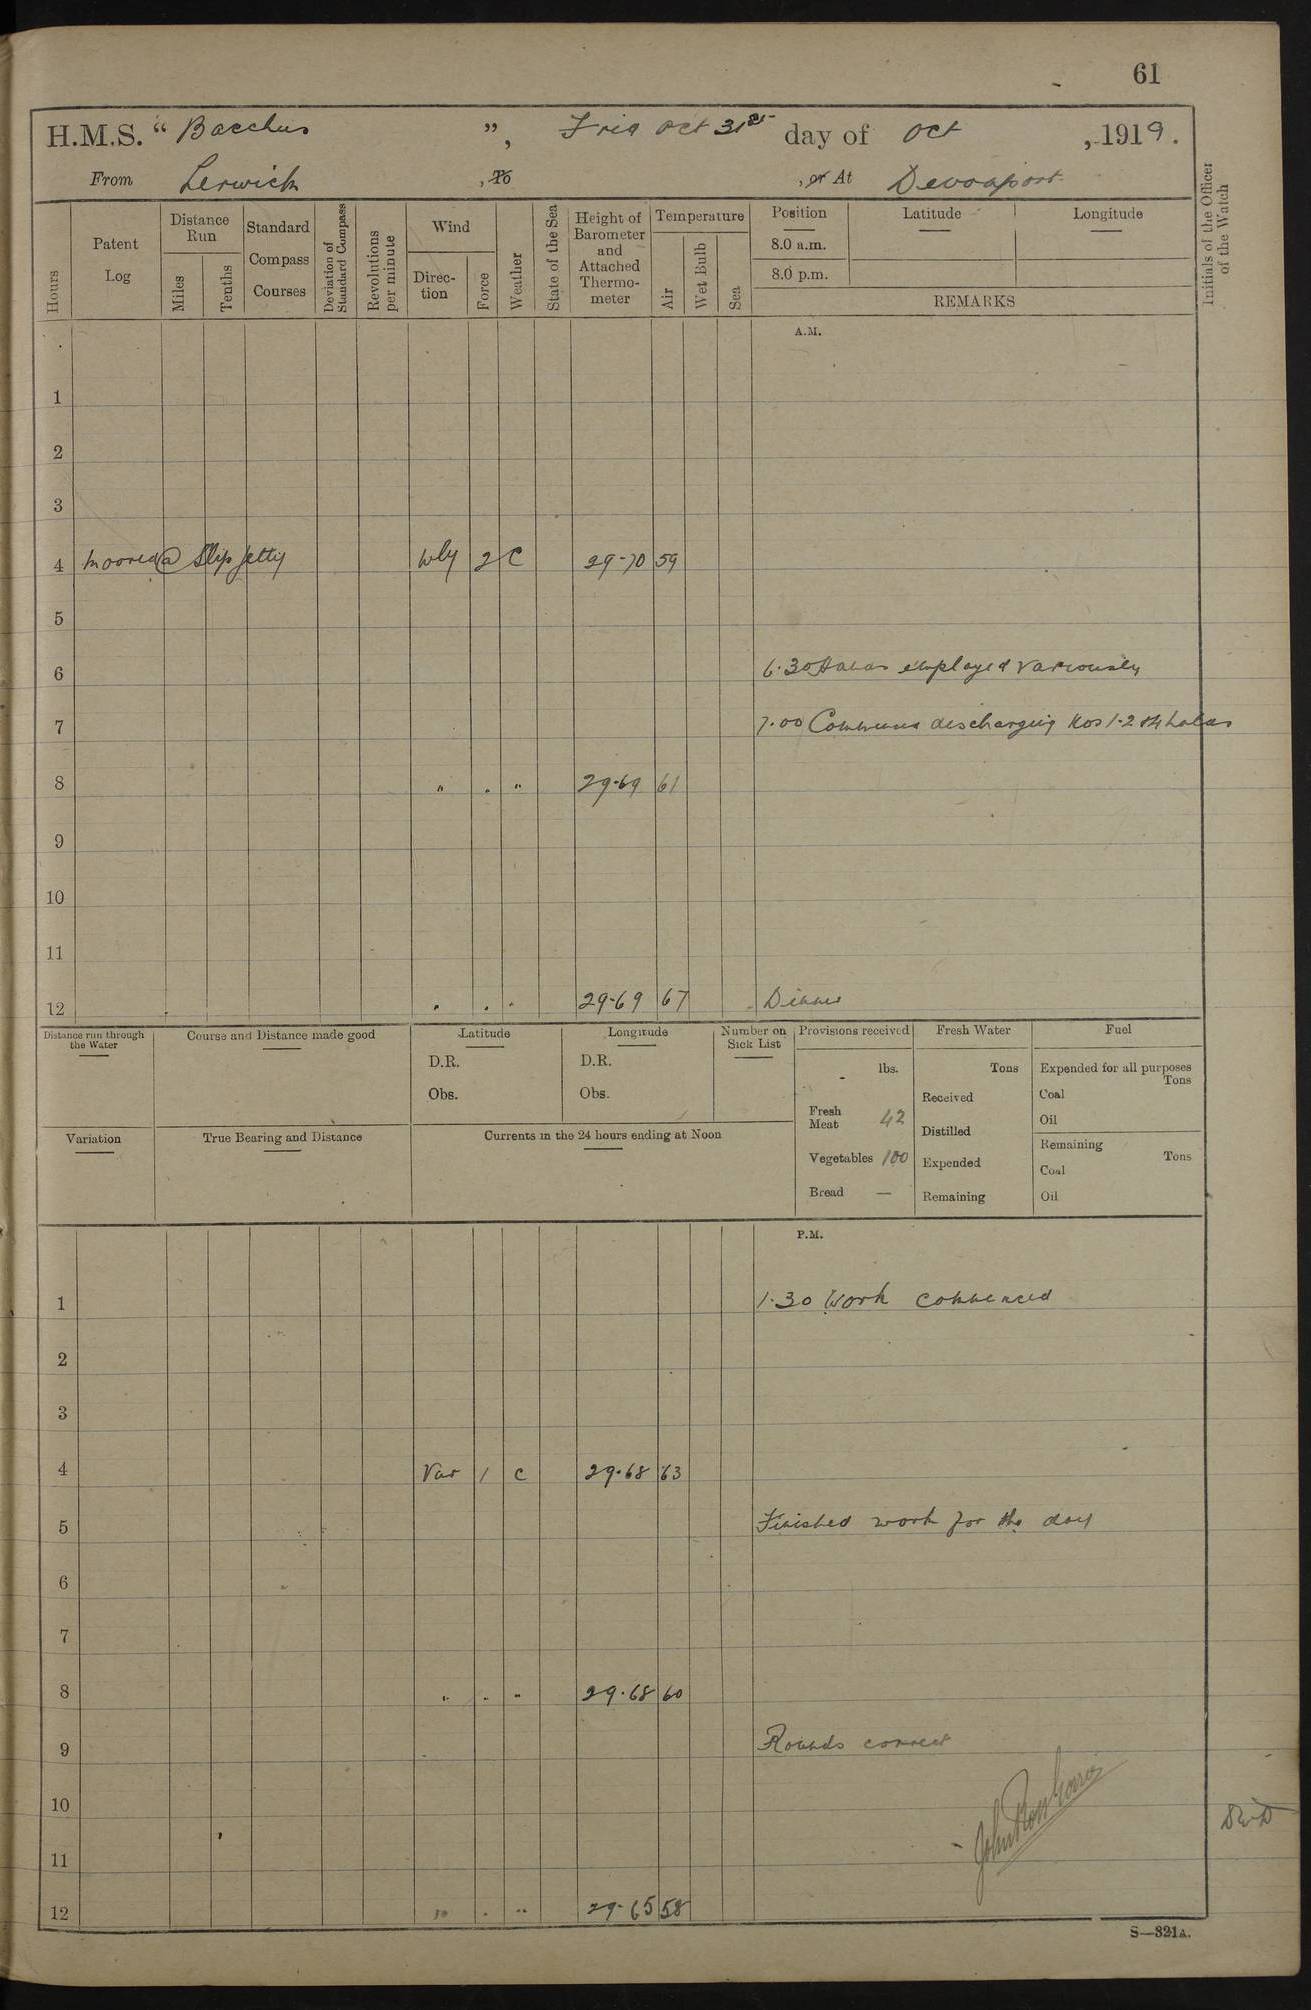 61
H.M.S. "Bacchus", Frid Oct 31st day of Oct, 1919.
From Lerwick, To , or At Devonport
Hours
Patent Log
Distance Run
Miles
Tenths
Standard Compass Courses
Deviation of Standard Compass
Revolutions per minute
Wind
Direction
Force
Weather
State of the Sea
Height of Barometer and Attached Thermometer
Temperature
Air
Wet Bulb
Sea
Position
Latitude
Longitude
8.0 a.m.
8.0 p.m.
REMARKS
Initials of the Officer of the Watch
A.M.
1
2
3
4 Moored @ Slip Jetty Wly 2 C 29-70 59
5
6 6.30 Hands employed variously
7 7.00 Commenced discharging Nos 1-2 & 4 holds
8 " . " 29-69 61
9
10
11
12 . . . 29-69 67 Dinner
Distance run through the Water
Course and Distance made good
Latitude
D.R.
Obs.
Longitude
D.R.
Obs.
Number on Sick List
Provisions received
lbs.
Fresh Meat 42
Vegetables 100
Bread —
Fresh Water
Tons
Received
Distilled
Expended
Remaining
Fuel
Expended for all purposes
Tons
Coal
Oil
Remaining
Tons
Coal
Oil
Variation
True Bearing and Distance
Currents in the 24 hours ending at Noon
P.M.
1 1.30 Work commenced
2
3
4 Var 1 c 29.68 63
5 Finished work for the day
6
7
8 " . " 29.68 60
9 Rounds correct
10
11
12 " . " 29-65 58
S—321A.